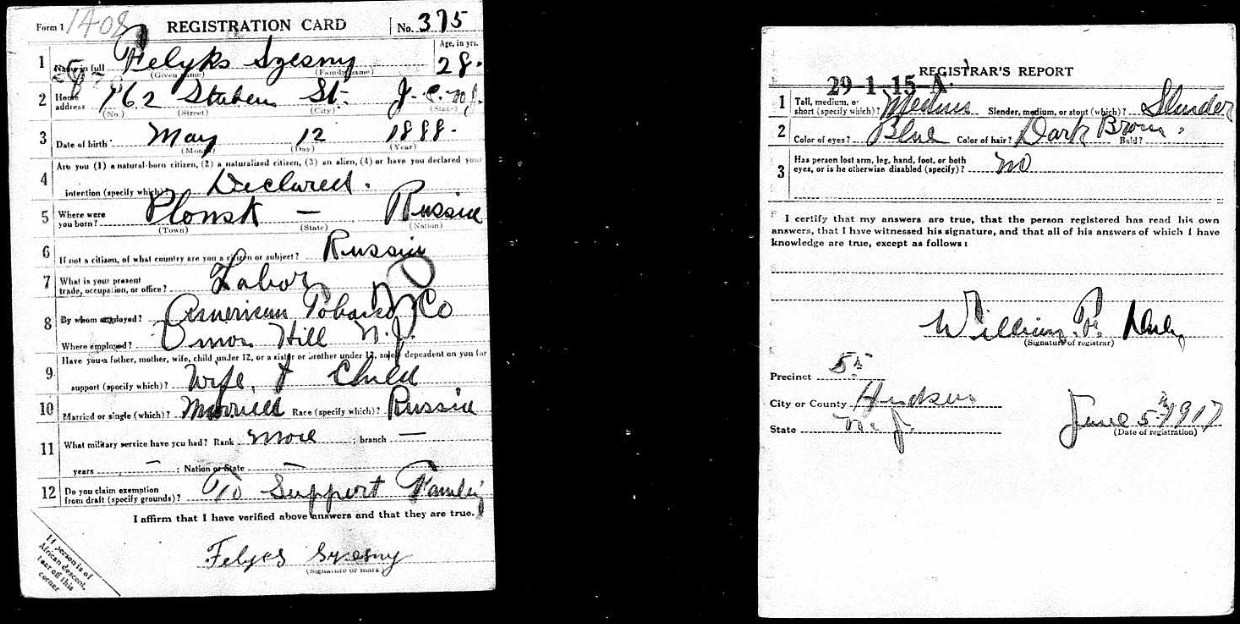 Form 1 1408 REGISTRATION CARD No. 375
1 Name in full Felyks Szesny Age, in yrs. 28.
(Given name) (Family name)
2 Home address 162 Stuben St. J.C. N.J.
(No.) (Street) (City) (State)
3 Date of birth May 12 1888.
(Month) (Day) (Year)
4 Are you (1) a natural-born citizen, (2) a naturalized citizen, (3) an alien, (4) or have you declared your
intention (specify which)? Declared.
5 Where were you born? Plonsk — Russia
(Town) (State) (Nation)
6 If not a citizen, of what country are you a citizen or subject? Russia
7 What is your present trade, occupation, or office? Labor
8 By whom employed? American Tobacco Co
Where employed? Union Hill N.J.
9 Have you a father, mother, wife, child under 12, or a sister or brother under 12, solely dependent on you for
support (specify which)? Wife, & Child
10 Married or single (which)? Married Race (specify which)? Russia
11 What military service have you had? Rank None ; branch —
years — ; Nation or State —
12 Do you claim exemption from draft (specify grounds)? To Support Family
I affirm that I have verified above answers and that they are true.
Felyks Szesny
(Signature or mark)
If person is of African descent, tear off this corner
29-1-15-A.
REGISTRAR'S REPORT
1 Tall, medium, or short (specify which)? Medium Slender, medium, or stout (which)? Slender
2 Color of eyes? Blue Color of hair? Dark Brown Bald?
3 Has person lost arm, leg, hand, foot, or both eyes, or is he otherwise disabled (specify)? No
I certify that my answers are true, that the person registered has read his own
answers, that I have witnessed his signature, and that all of his answers of which I have
knowledge are true, except as follows:
William P.
(Signature of registrar)
Precinct 5th
City or County Hudson
State N.J.
June 5th 1917
(Date of registration)